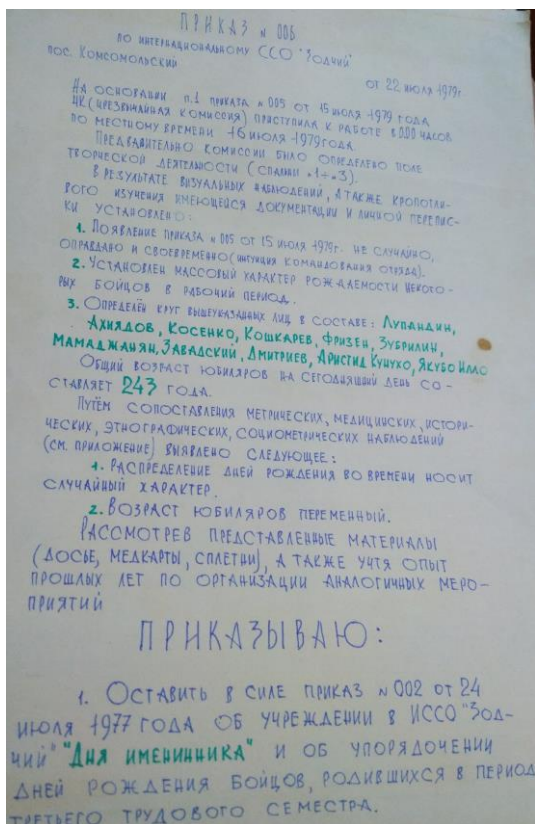 ПРИКАЗ № 006
ПО ИНТЕРНАЦИОНАЛЬНОМУ ССО "ЗОДЧИЙ"
ПОС. КОМСОМОЛЬСКИЙ
ОТ 22 ИЮЛЯ 1979г.
НА ОСНОВАНИИ П.1 ПРИКАЗА № 005 ОТ 15 ИЮЛЯ 1979 ГОДА
ЧК (ЧРЕЗВЫЧАЙНАЯ КОМИССИЯ) ПРИСТУПИЛА К РАБОТЕ В 0.00 ЧАСОВ
ПО МЕСТНОМУ ВРЕМЕНИ 16 ИЮЛЯ 1979 ГОДА.
ПРЕДВАРИТЕЛЬНО КОМИССИИ БЫЛО ОПРЕДЕЛЕНО ПОЛЕ
ТВОРЧЕСКОЙ ДЕЯТЕЛЬНОСТИ (СПАЛЬНИ •1÷•3).
В РЕЗУЛЬТАТЕ ВИЗУАЛЬНЫХ НАБЛЮДЕНИЙ, А ТАКЖЕ КРОПОТЛИ-
ВОГО ИЗУЧЕНИЯ ИМЕЮЩЕЙСЯ ДОКУМЕНТАЦИИ И ЛИЧНОЙ ПЕРЕПИС-
КИ УСТАНОВЛЕНО:
1. ПОЯВЛЕНИЕ ПРИКАЗА № 005 ОТ 15 ИЮЛЯ 1979г. НЕ СЛУЧАЙНО,
ОПРАВДАНО И СВОЕВРЕМЕННО (ИНТУИЦИЯ КОМАНДОВАНИЯ ОТРЯДА).
2. УСТАНОВЛЕН МАССОВЫЙ ХАРАКТЕР РОЖДАЕМОСТИ НЕКОТО-
РЫХ БОЙЦОВ В РАБОЧИЙ ПЕРИОД.
3. ОПРЕДЕЛЁН КРУГ ВЫШЕУКАЗАННЫХ ЛИЦ В СОСТАВЕ: ЛУПАНДИН,
АХИЯДОВ, КОСЕНКО, КОШКАРЕВ, ФРИЗЕН, ЗУБРИЛИН,
МАМАДЖАНЯН, ЗАВАДСКИЙ, ДМИТРИЕВ, АРИСТИД КУНУХО, ЯКУБО
ОБЩИЙ ВОЗРАСТ ЮБИЛЯРОВ НА СЕГОДНЯШНИЙ ДЕНЬ СО-
СТАВЛЯЕТ 243 ГОДА.
ПУТЁМ СОПОСТАВЛЕНИЯ МЕТРИЧЕСКИХ, МЕДИЦИНСКИХ, ИСТОРИ-
ЧЕСКИХ, ЭТНОГРАФИЧЕСКИХ, СОЦИОМЕТРИЧЕСКИХ НАБЛЮДЕНИЙ
(СМ. ПРИЛОЖЕНИЕ) ВЫЯВЛЕНО СЛЕДУЮЩЕЕ:
1. РАСПРЕДЕЛЕНИЕ ДНЕЙ РОЖДЕНИЯ ВО ВРЕМЕНИ НОСИТ
СЛУЧАЙНЫЙ ХАРАКТЕР.
2. ВОЗРАСТ ЮБИЛЯРОВ ПЕРЕМЕННЫЙ.
РАССМОТРЕВ ПРЕДСТАВЛЕННЫЕ МАТЕРИАЛЫ
(ДОСЬЕ, МЕДКАРТЫ, СПЛЕТНИ), А ТАКЖЕ УЧТЯ ОПЫТ
ПРОШЛЫХ ЛЕТ ПО ОРГАНИЗАЦИИ АНАЛОГИЧНЫХ МЕРО-
ПРИЯТИЙ
ПРИКАЗЫВАЮ:
1. ОСТАВИТЬ В СИЛЕ ПРИКАЗ № 002 ОТ 24
ИЮЛЯ 1977 ГОДА ОБ УЧРЕЖДЕНИИ В ИССО "ЗОД-
ЧИЙ" "ДНЯ ИМЕНИННИКА" И ОБ УПОРЯДОЧЕНИИ
ДНЕЙ РОЖДЕНИЯ БОЙЦОВ, РОДИВШИХСЯ В ПЕРИОД
ТРЕТЬЕГО ТРУДОВОГО СЕМЕСТРА.